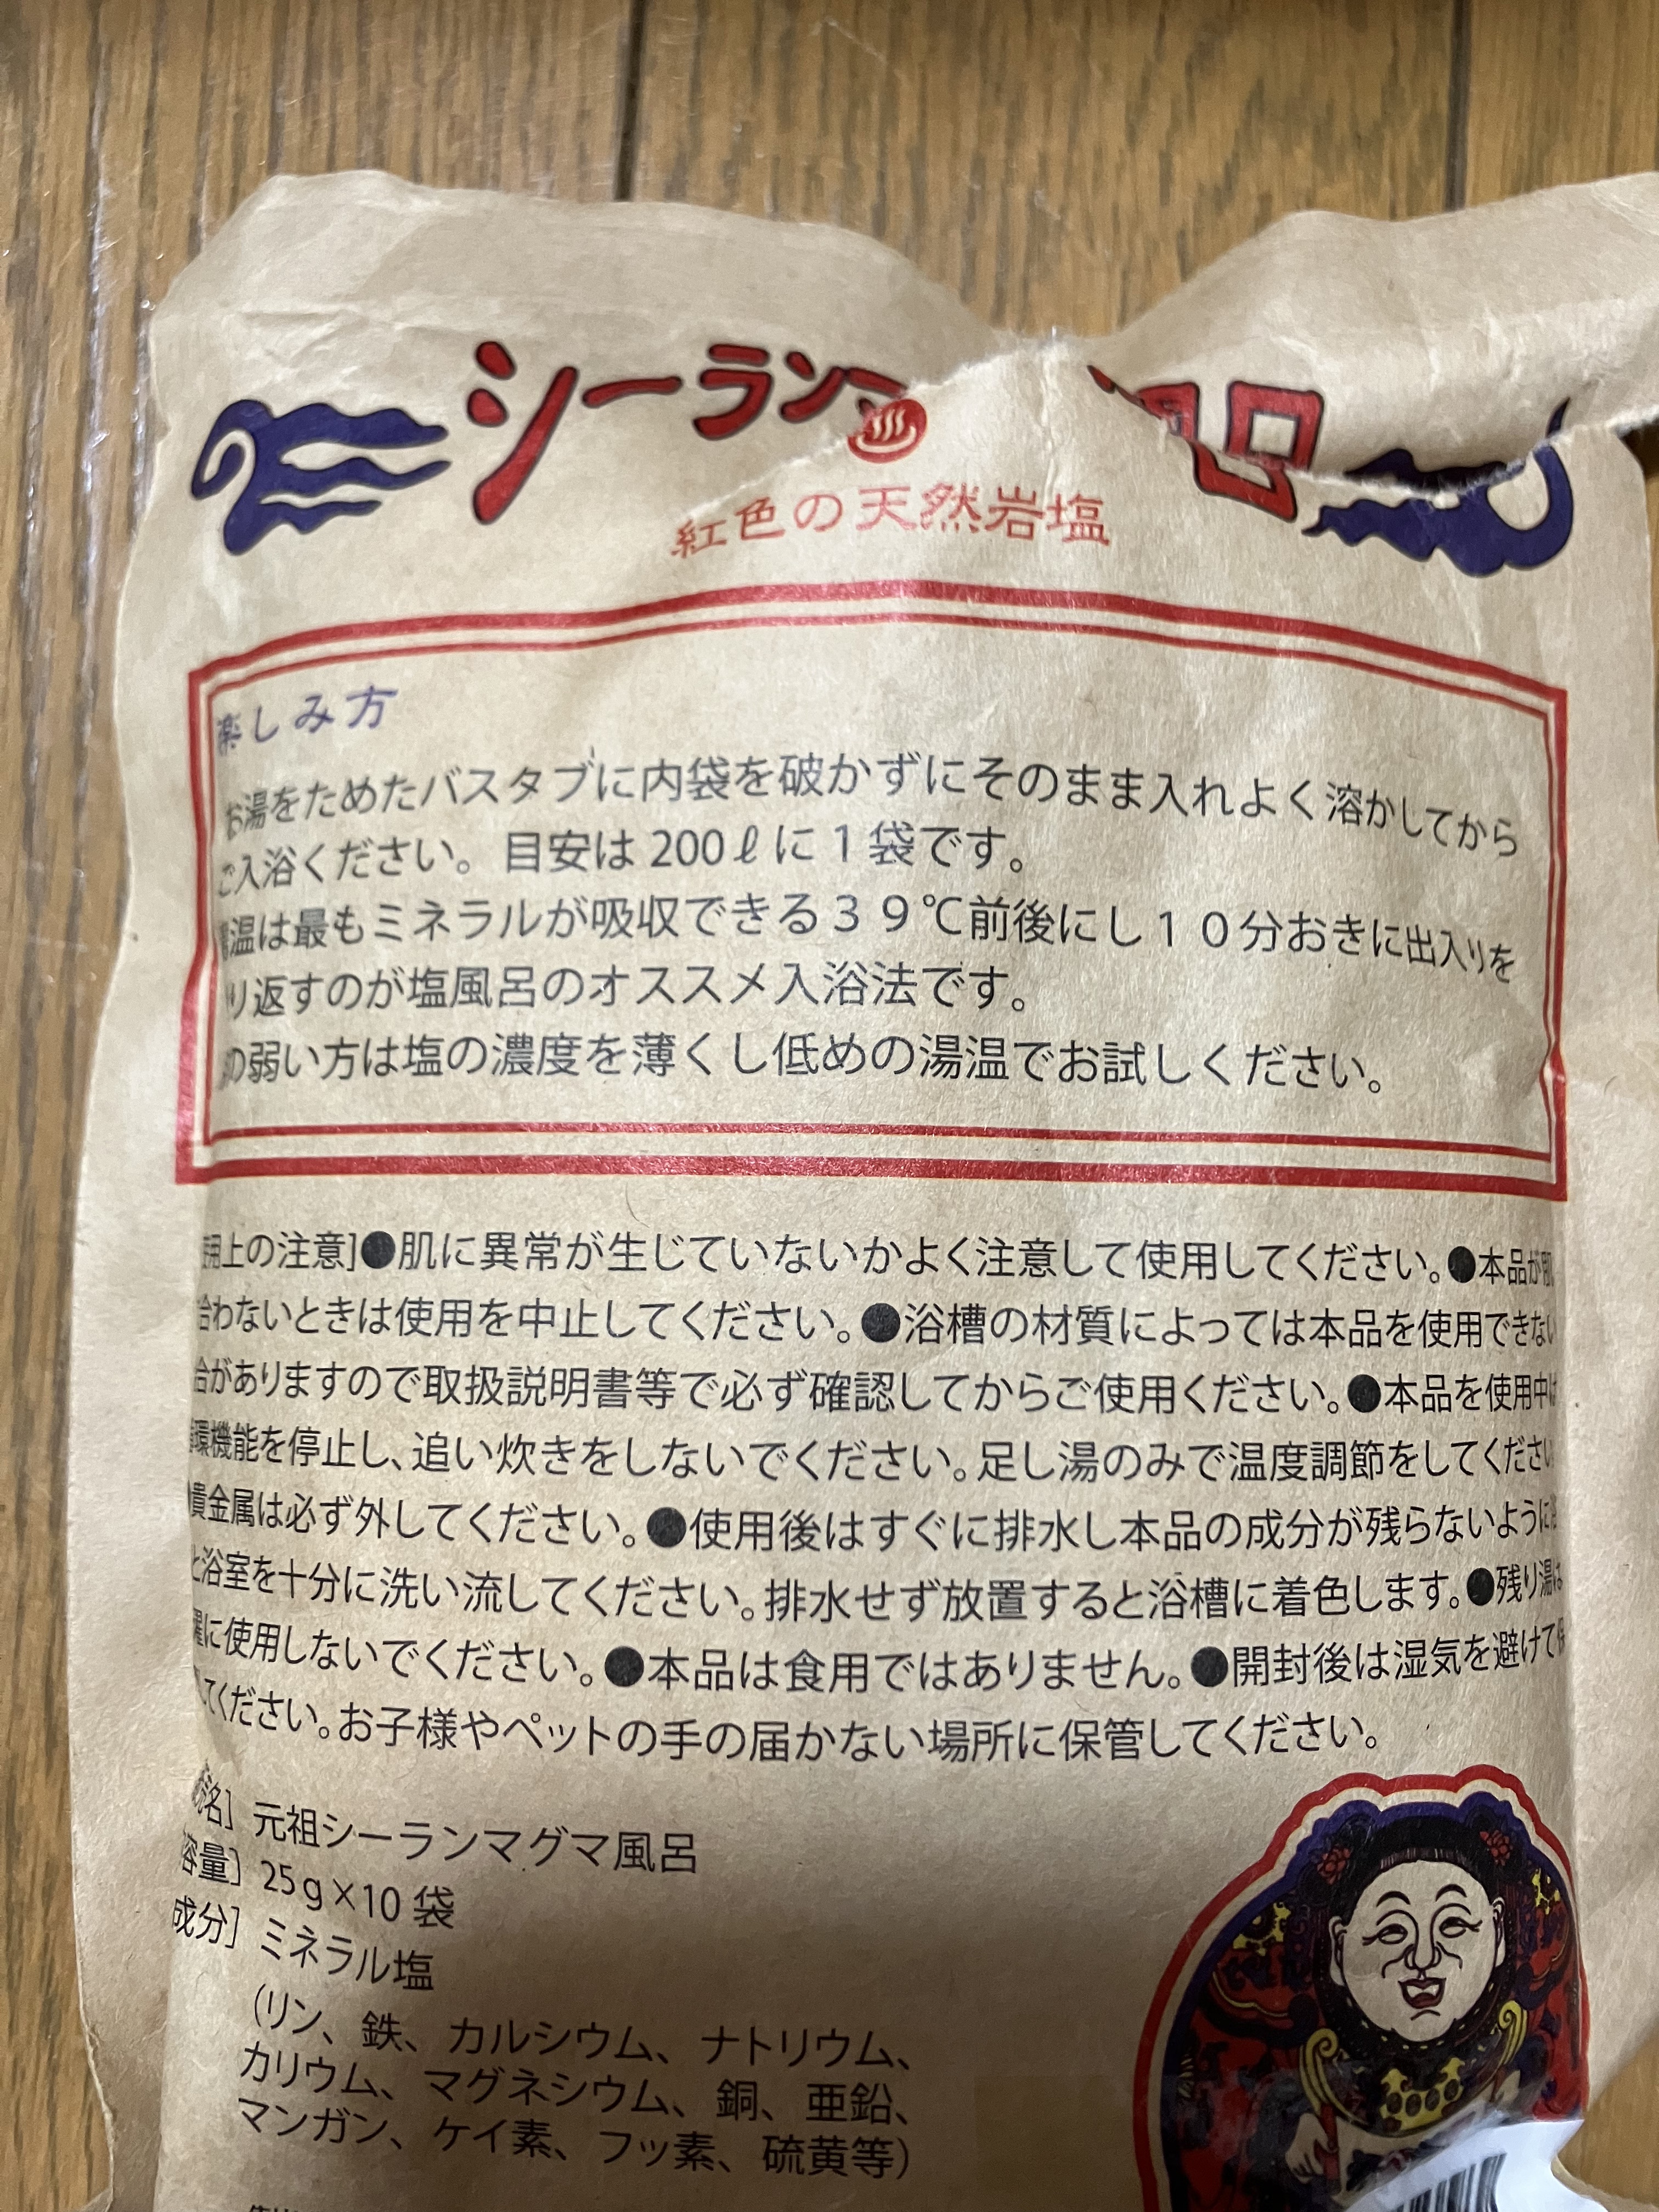 シーラン
紅色の天然岩塩
楽しみ方
お湯をためたバスタブに内袋を破かずにそのまま入れよく溶かしてから
ご入浴ください。目安は 200ℓに１袋です。
温は最もミネラルが吸収できる３９℃前後にし１０分おきに出入りを
り返すのが塩風呂のオススメ入浴法です。
の弱い方は塩の濃度を薄くし低めの湯温でお試しください。
用上の注意]●肌に異常が生じていないかよく注意して使用してください。●本品が肌
合わないときは使用を中止してください。●浴槽の材質によっては本品を使用できない
合がありますので取扱説明書等で必ず確認してからご使用ください。●本品を使用中は
環機能を停止し、追い炊きをしないでください。足し湯のみで温度調節をしてください
貴金属は必ず外してください。●使用後はすぐに排水し本品の成分が残らないように
と浴室を十分に洗い流してください。排水せず放置すると浴槽に着色します。●残り湯は
濯に使用しないでください。●本品は食用ではありません。●開封後は湿気を避けて保
してください。お子様やペットの手の届かない場所に保管してください。
名] 元祖シーランマグマ風呂
容量] 25g×10 袋
成分] ミネラル塩
(リン、鉄、カルシウム、ナトリウム、
カリウム、マグネシウム、銅、亜鉛、
マンガン、ケイ素、フッ素、硫黄等)